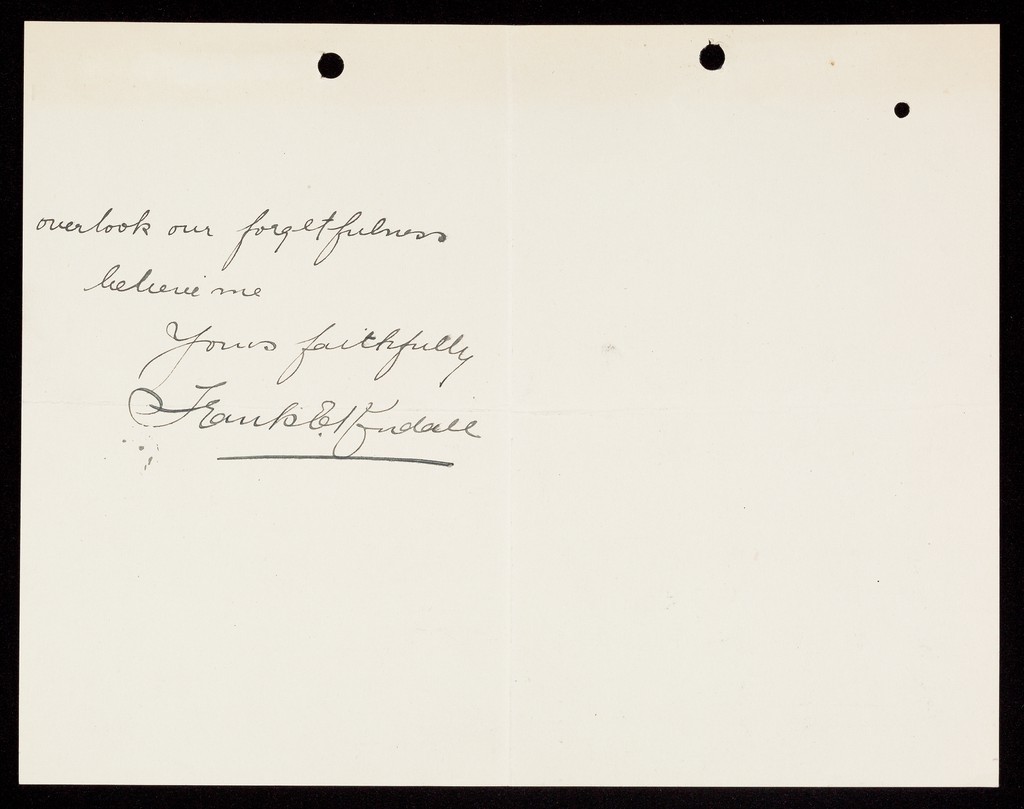 overlook our forgetfulness
believe me
Yours faithfully
Frank E. Kendall